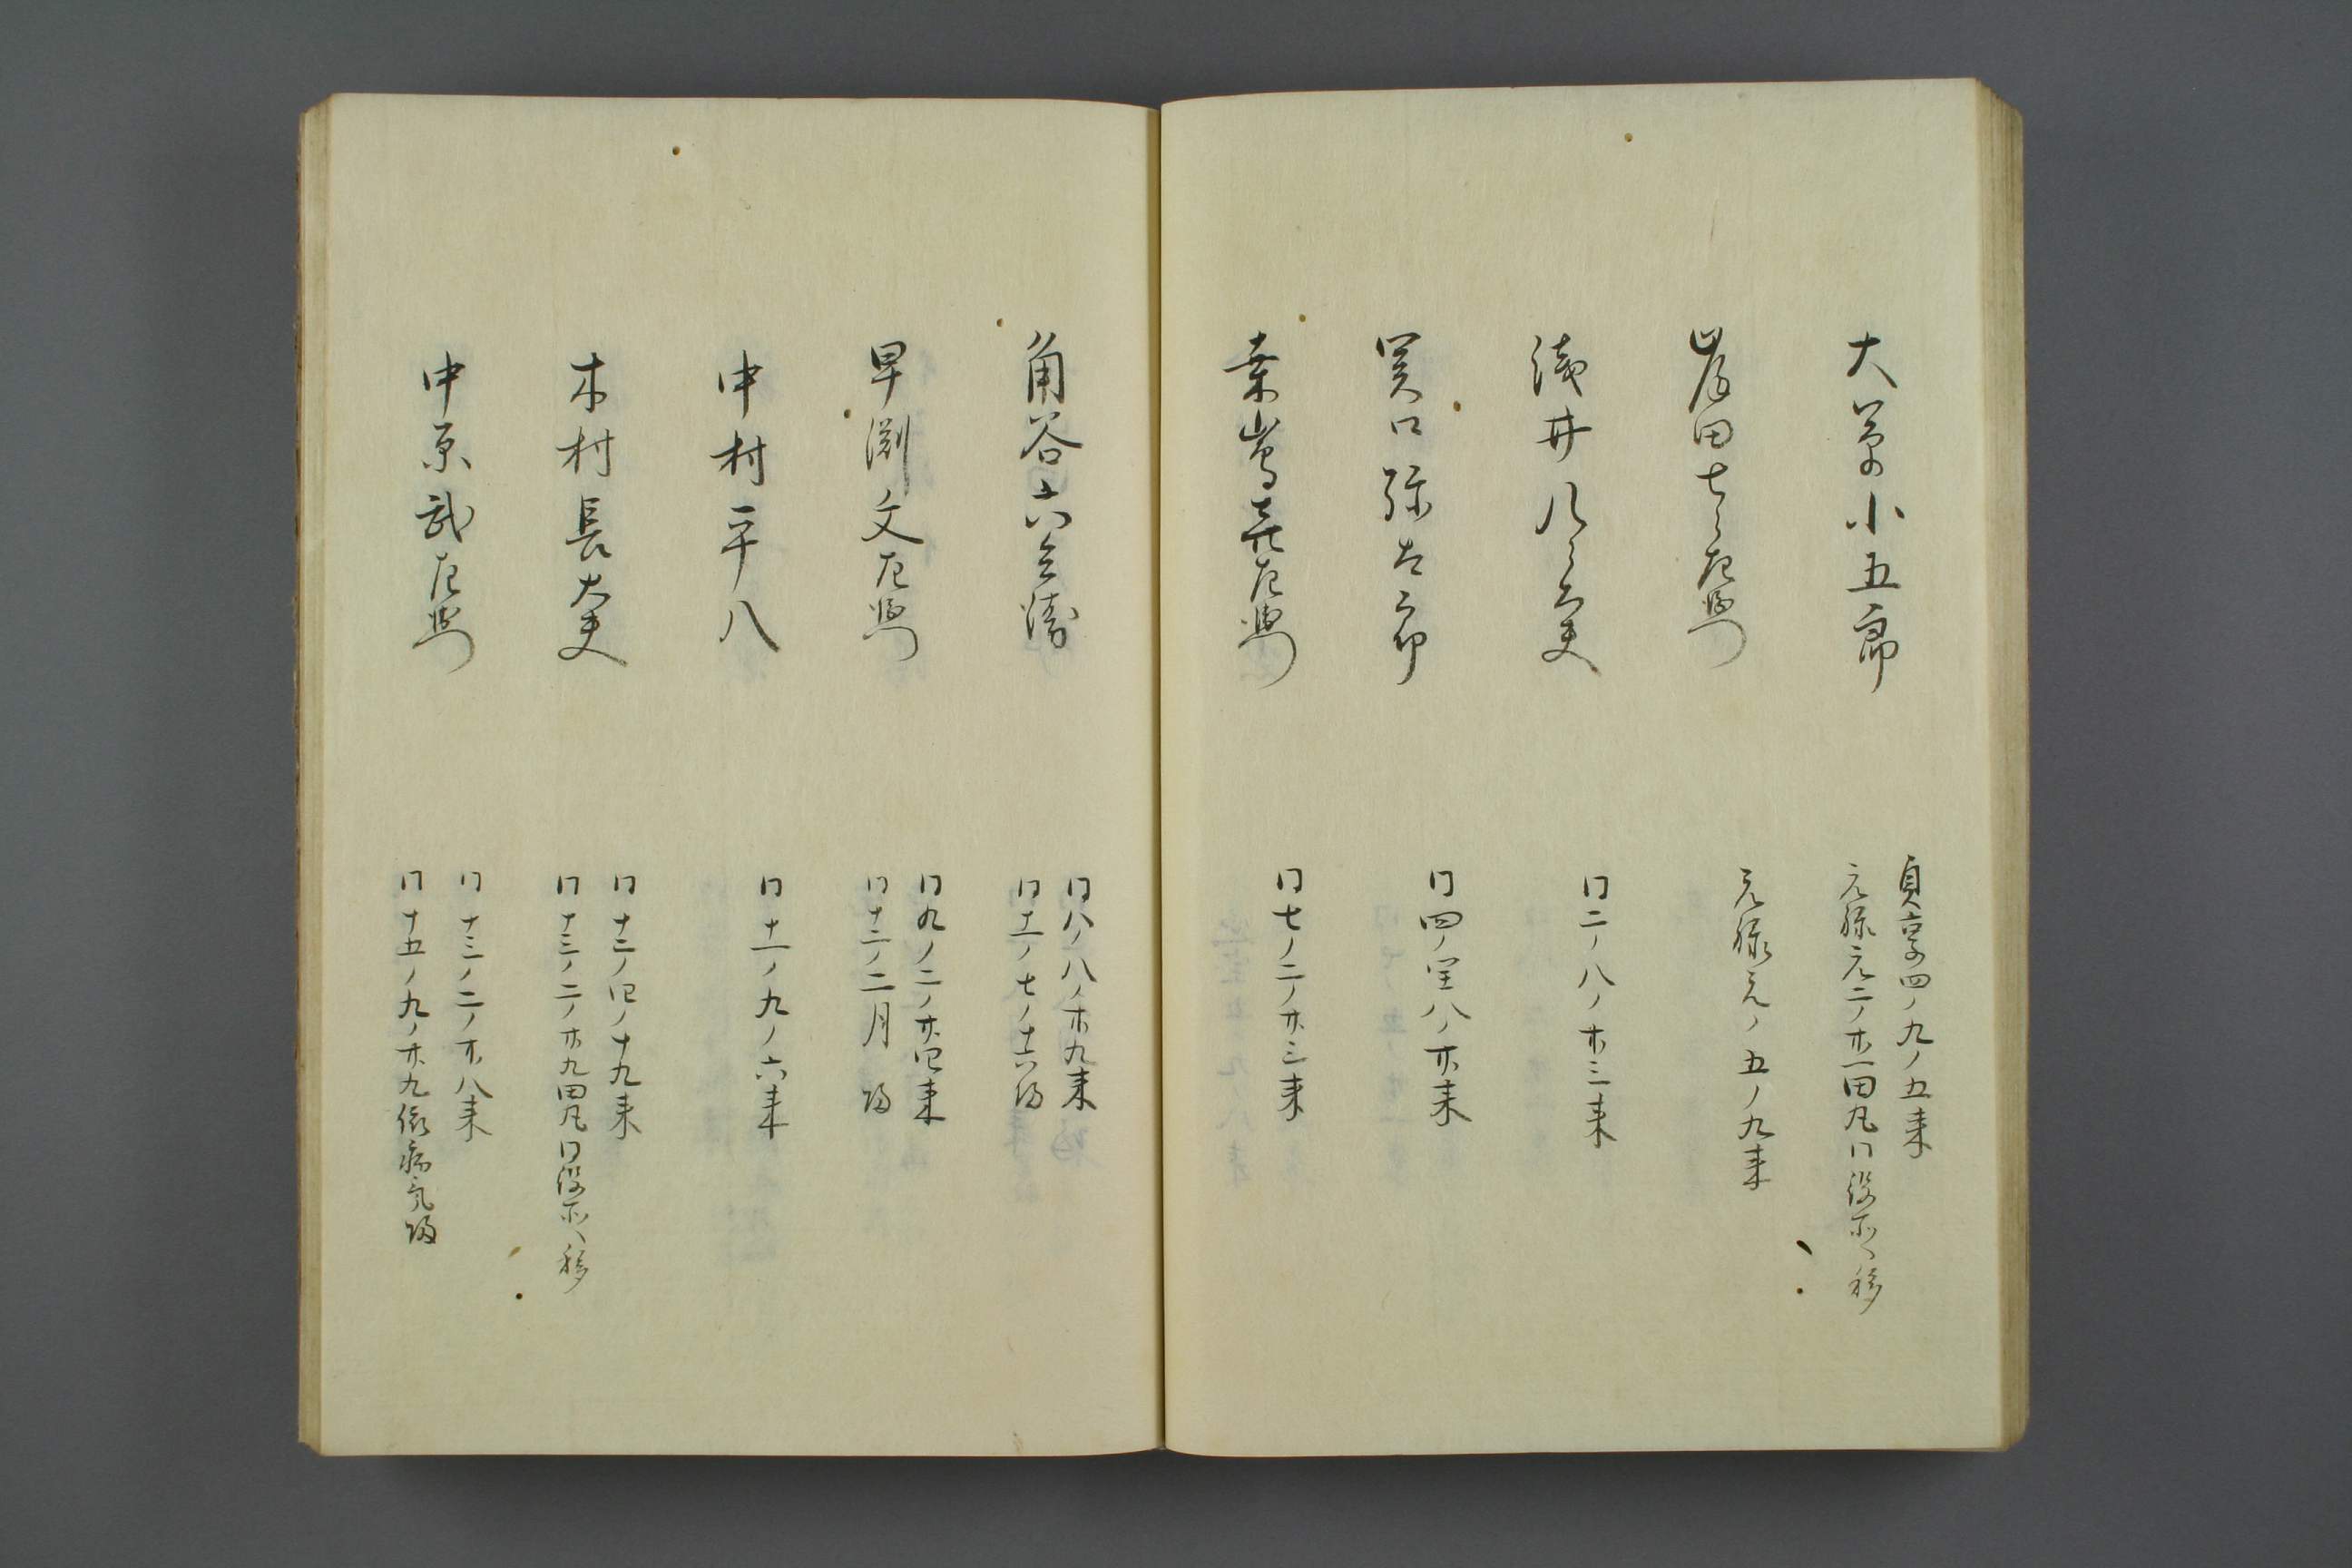 大草小五郎
貞享四ノ九ノ五来
元禄元二ノ廿一田丸同役所へ移
岸田七郎左衛門
元禄元ノ五ノ九来
浅井八郎太夫
同二ノ八ノ廿三来
関口弥太郎
同四ノ閏八ノ廿来
桑嶌喜左衛門
同七ノ二ノ廿三来
角谷六兵衛
同八ノ八ノ廿九来
同十一ノ七ノ十六帰
早渕文左衛門
同九ノ二ノ廿四来
同十二ノ二月帰
中村平八
同十一ノ九ノ六来
木村長太夫
同十二ノ四ノ十九来
同十三ノ二ノ廿九田丸同役所へ移
中原武左衛門
同十三ノ二ノ廿八来
同十五ノ九ノ廿九依病気帰